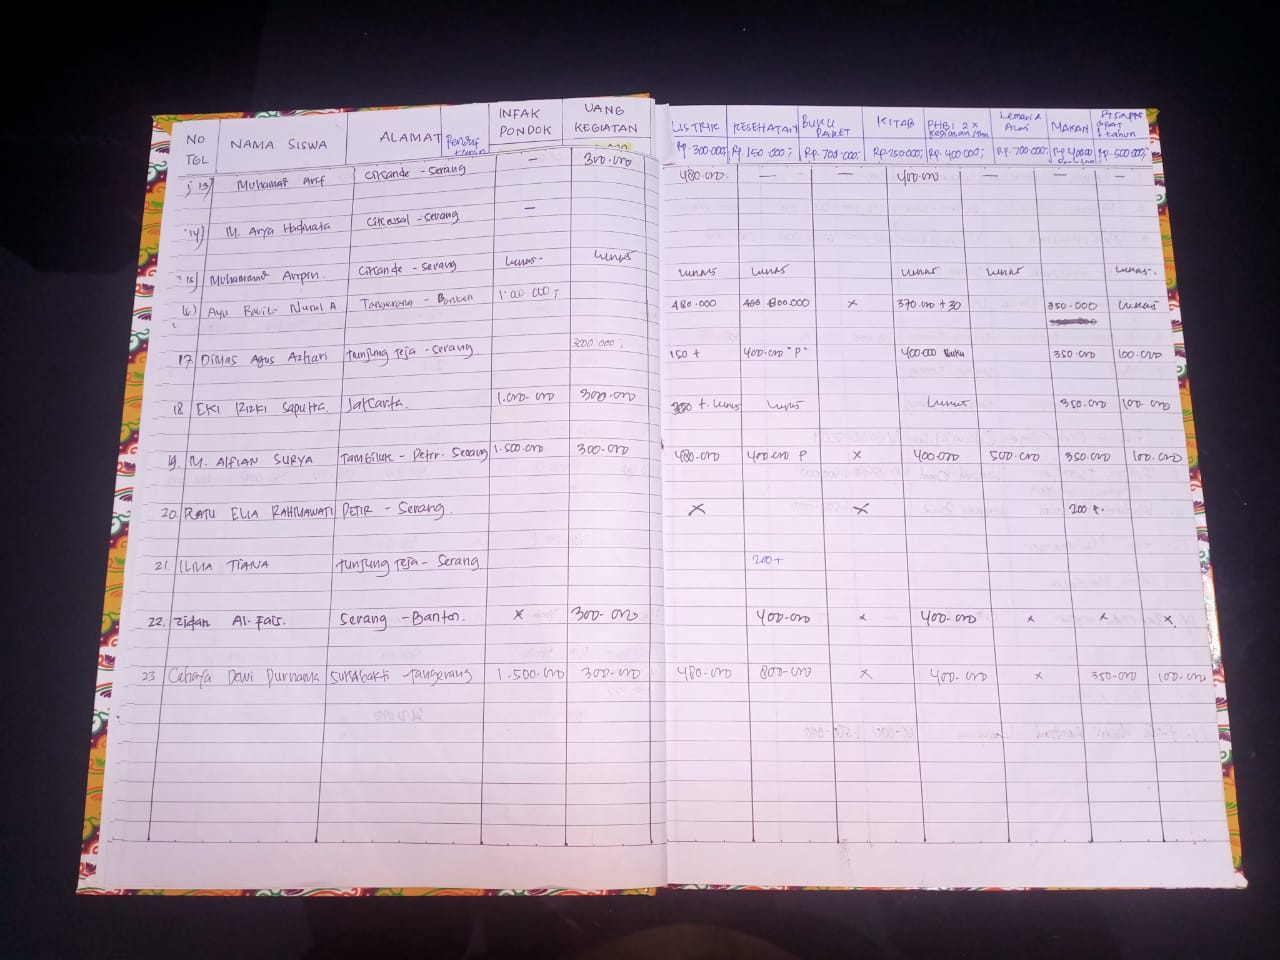 NO TGL NAMA SISWA ALAMAT INFAK PONDOK UANG KEGIATAN LISTRIK KESEHATAN BUKU PAKET KITAB PHBI 2x Lemari & MAKAN
Rp. 300.000; Rp 150.000; Rp. 700.000; Rp. 250.000; Rp. 400.000; Rp. 700.000; Rp. 500.000;
13) Muhamad Arif Cikande - Serang — 300.000 480.000. — — 400.000 — — —
14) M. Arya Hadinata - Serang —
15) Muhammad Cikande - Serang Lunas. Lunas Lunas Lunas Lunas Lunas Lunas.
16) Ayu Nurul A Tangerang - Banten 1.000.000; 480.000 800.000 x 370.000 + 30 350.000 Lunas
17 Dimas Agus Azhari tunjung teja - serang. 300.000; 150 + 400.000 "P" 400.000 Buku 350.000 100.000
18 EKI RIZKI Saputra. Jakarta. 1.000.000 300.000 350 + Lunas Lunas Lunas 350.000 100.000
19. M. ALFIAN SURYA - Petir. Serang 1.500.000 300.000 480.000 400.000 P x 400.000 500.000 350.000 100.000
20. RATU ELIA RAHMAWATI PETIR - Serang. x x 200 +.
21. ILMA TIANA tunjung teja - Serang 200+
22. Zidan Al-Fais. Serang - Banten. x 300.000 400.000 x 400.000 x x x
23 Cahaya Dewi Purnama - Tangerang 1.500.000 300.000 480.000 800.000 x 400.000 x 350.000 100.000